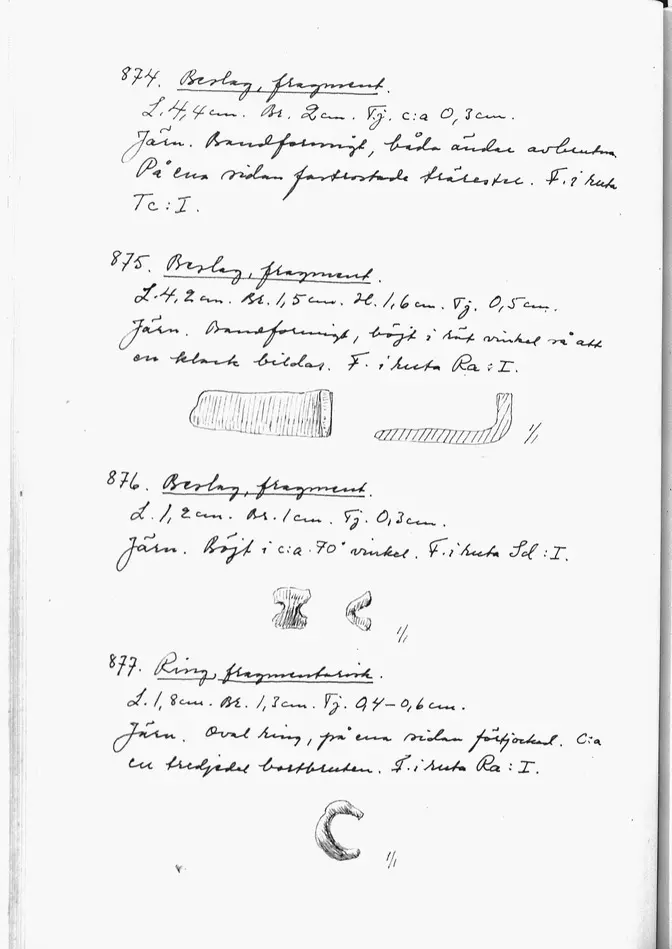 874. Beslag, fragment.
L. 4,4 cm. Br. 2 cm. Tj. c:a 0,3 cm.
Järn. Bandformigt, båda ändar avbrutna.
På ena sidan fastrostade trärester. F. i ruta
Tc : I.
875. Beslag, fragment.
L. 4,2 cm. Br. 1,5 cm. H. 1,6 cm. Tj. 0,5 cm.
Järn. Bandformigt, böjt i rät vinkel så att
en klack bildas. F. i ruta Ra : I.
1/1
876. Beslag, fragment.
L. 1,2 cm. Br. 1 cm. Tj. 0,3 cm.
Järn. Böjt i c:a 70° vinkel. F. i ruta Sd : I.
1/1
877. Ring, fragmentarisk.
L. 1,8 cm. Br. 1,3 cm. Tj. 0,4–0,6 cm.
Järn. Oval ring, på ena sidan förtjockad. C:a
en tredjedel bortbruten. F. i ruta Ra : I.
1/1